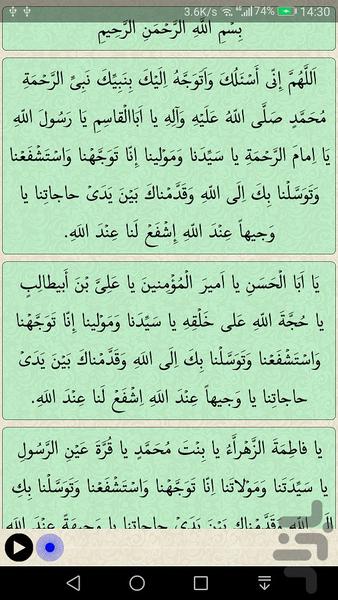 3.6K/s 4G 74% 14:30
بِسْمِ اللهِ الرَّحْمَنِ الرَّحِيمِ
اَللَّهُمَّ اِنّی أَسْئَلُكَ وَاَتَوَجَّهُ اِلَيْكَ بِنَبِيِّكَ نَبِیِّ الرَّحْمَةِ
مُحَمَّدٍ صَلَّی اللهُ عَلَيْهِ وَآلِهِ يا اَبَاالْقاسِمِ يا رَسُولَ اللهِ
يا اِمامَ الرَّحْمَةِ يا سَيِّدَنا وَمَوْلينا اِنّا تَوَجَّهْنا وَاسْتَشْفَعْنا
وَتَوَسَّلْنا بِكَ اِلَی اللهِ وَقَدَّمْناكَ بَيْنَ يَدَیْ حاجاتِنا يا
وَجيهاً عِنْدَ اللهِ اِشْفَعْ لَنا عِنْدَ اللهِ.
يَا اَبَا الْحَسَنِ يا اَميرَ الْمُؤْمِنينَ يا عَلِیَّ بْنَ أَبيطالِبٍ
يا حُجَّةَ اللهِ عَلی خَلْقِهِ يا سَيِّدَنا وَمَوْلينا اِنّا تَوَجَّهْنا
وَاسْتَشْفَعْنا وَتَوَسَّلْنا بِكَ اِلَی اللهِ وَقَدَّمْناكَ بَيْنَ يَدَیْ
حاجاتِنا يا وَجيهاً عِنْدَ اللهِ اِشْفَعْ لَنا عِنْدَ اللهِ.
يا فاطِمَةَ الزَّهْراَّءُ يا بِنْتَ مُحَمَّدٍ يا قُرَّةَ عَيْنِ الرَّسُولِ
يا سَيِّدَتَنا وَمَوْلاتَنا اِنّا تَوَجَّهْنا وَاسْتَشْفَعْنا وَتَوَسَّلْنا بِكِ
اِلَی اللهِ وَقَدَّمْناكِ بَيْنَ يَدَیْ حاجاتِنا يا وَجيهَةً عِنْدَ اللهِ